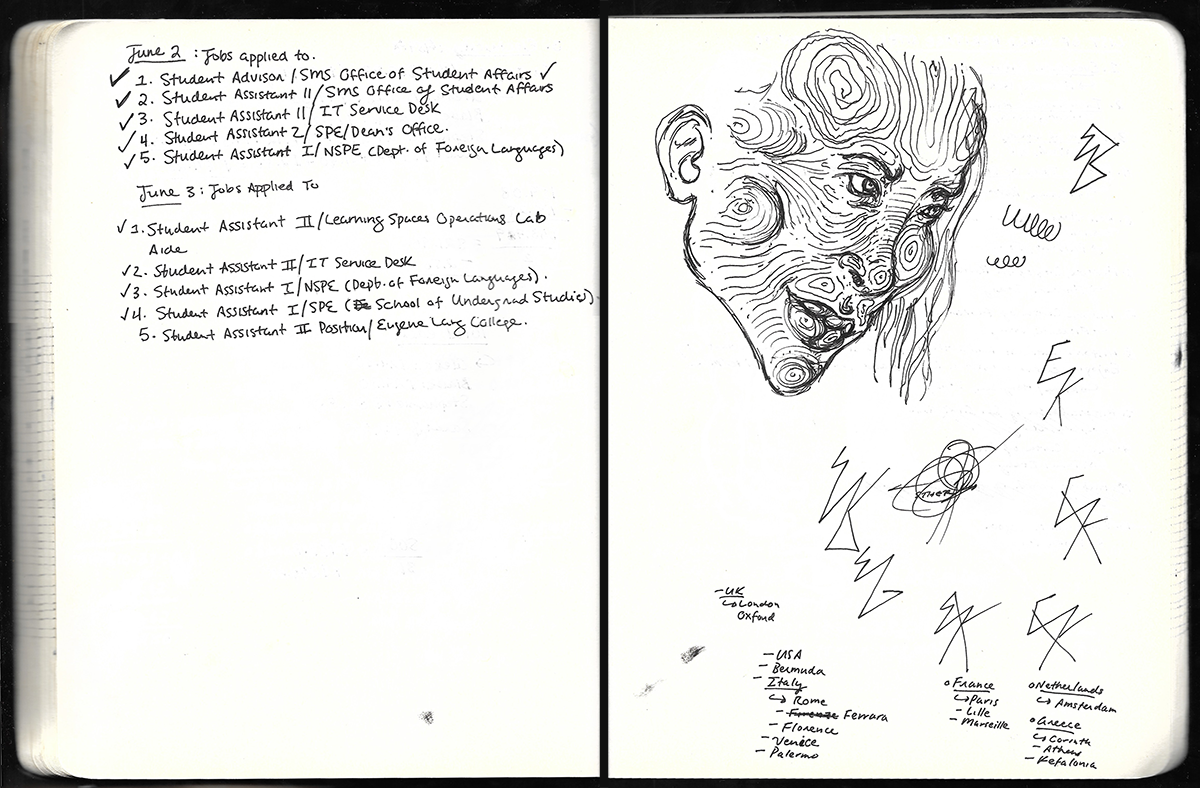 June 2 : Jobs applied to.
1. Student Advisor / SMS Office of Student Affairs
2. Student Assistant II / SMS Office of Student Affairs
3. Student Assistant II / IT Service Desk
4. Student Assistant 2 / SPE/Dean's Office.
5. Student Assistant I / NSPE (Dept. of Foreign Languages)
June 3 : Jobs Applied To
1. Student Assistant II / Learning Spaces Operations Lab
Aide
2. Student Assistant II / IT Service Desk
3. Student Assistant I / NSPE (Dept. of Foreign Languages).
4. Student Assistant I / SPE ( School of Undergrad Studies)
5. Student Assistant II Position / Eugene Lang College.
- UK
↳ London
Oxford
- USA
- Bermuda
- Italy
↳ Rome
- Firenze Ferrara
- Florence
- Venice
- Palermo
o France
↳ Paris
- Lille
- Marseille
o Netherlands
↳ Amsterdam
o Greece
↳ Corinth
- Athens
- Kefalonia